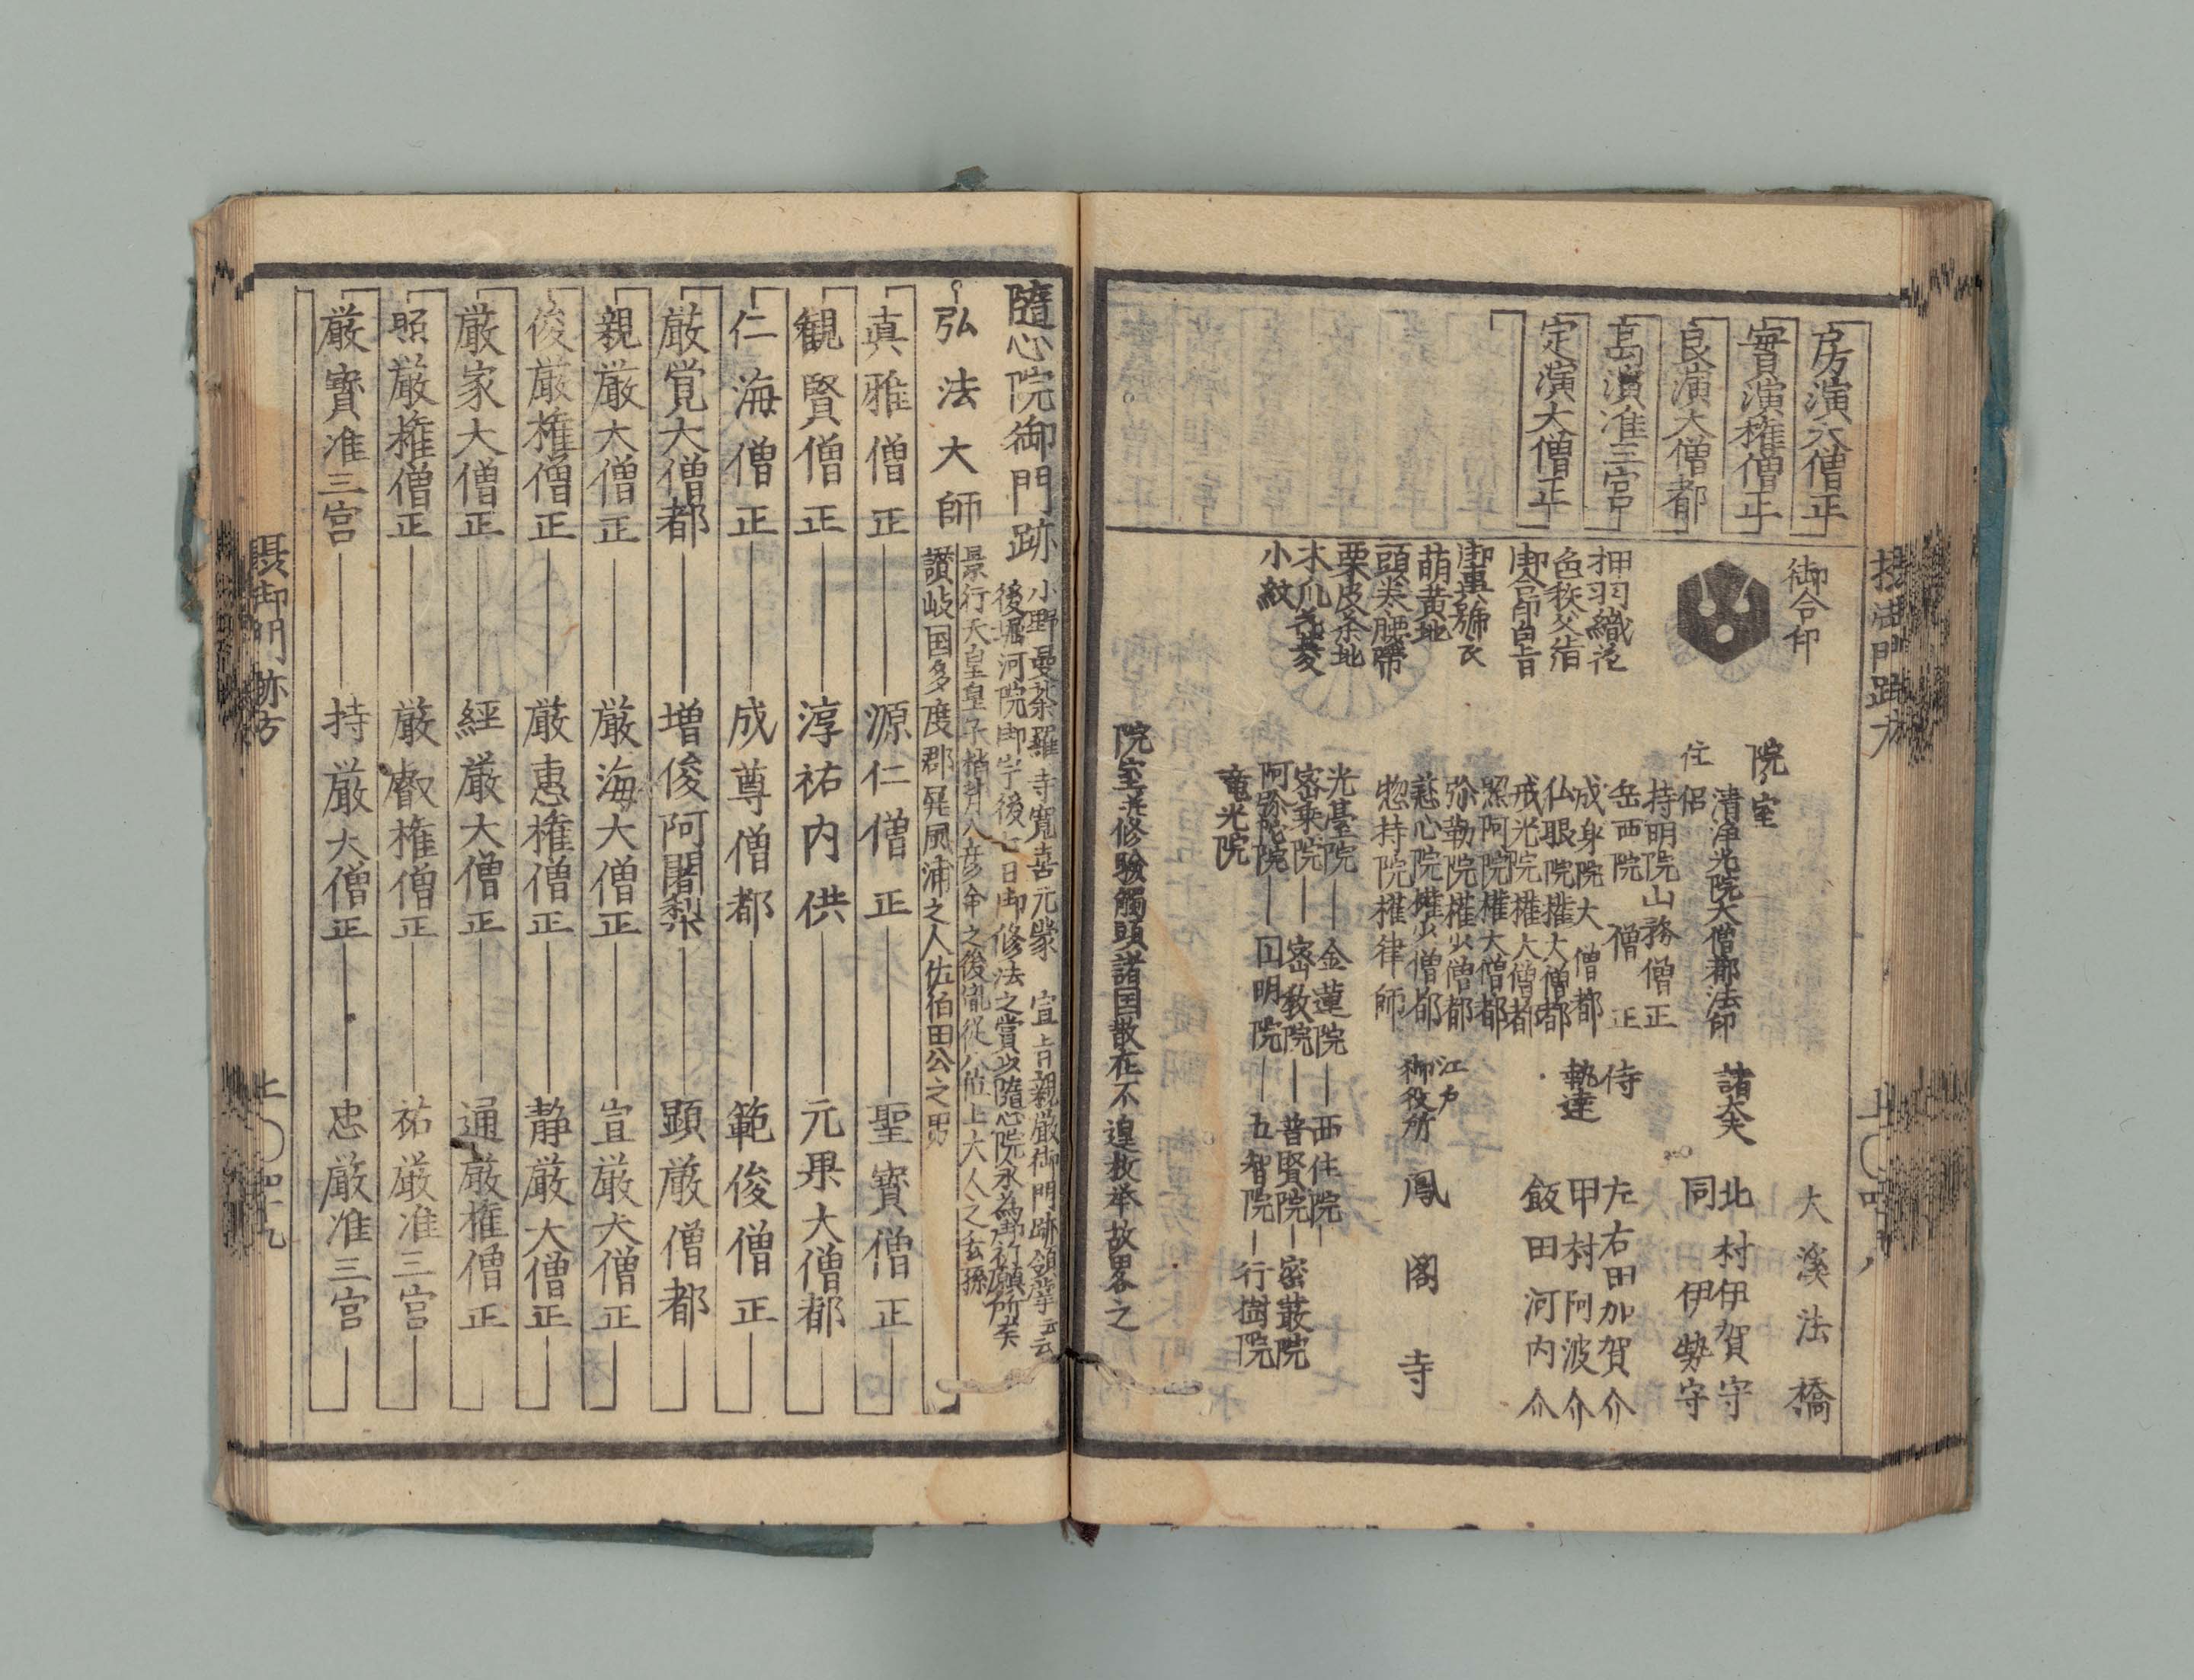 摂御門跡方
房演大僧正
實演権僧正
良演大僧都
高演准三宮
定演大僧正
御合印
押羽織花
色秩父絹
御合印白旨
御裏號衣
萌黄地
頭巻腰帯
栗皮茶地
木爪花菱
小紋
院室
清浄光院大僧都法印
住侶
持明院山務僧正
岳西院 僧正
成身院大僧都
仏眼院権大僧都
戒光院権大僧都
照阿院権大僧都
弥勒院権少僧都
慈心院権少僧都
惣持院権律師
光臺院 金蓮院 西住院
密乗院 密教院 普賢院 密蔵院
阿弥陀院 囙明院 五智院 行樹院
竜光院
大溪法橋
諸大夫
北村伊賀守
同 伊勢守
侍
左右田加賀介
執達
甲村阿波介
飯田河内介
江戸
御役所
鳳閣寺
院室并修驗觸頭諸国散在不遑枚挙故畧之
上〇四十八
隨心院御門跡
小野曼荼羅寺寛喜元蒙 宣旨親厳御門跡領掌云云
後堀河院御宇後七日御修法之賞以隨心院永為御祈願所矣
弘法大師
景行天皇皇子稲背入彦命之後胤従八位上大人之玄孫
讃岐国多度郡屏風浦之人佐伯田公之男
真雅僧正 源仁僧正 聖寳僧正
観賢僧正 淳祐内供 元杲大僧都
仁海僧正 成尊僧都 範俊僧正
厳覚大僧都 増俊阿闍梨 顕厳僧都
親厳大僧正 厳海大僧正 宣厳大僧正
俊厳権僧正 厳恵権僧正 静厳大僧正
厳家大僧正 經厳大僧正 通厳権僧正
照厳権僧正 厳叡権僧正 祐厳准三宮
厳寳准三宮 持厳大僧正 忠厳准三宮
摂御門跡方
上〇四十九